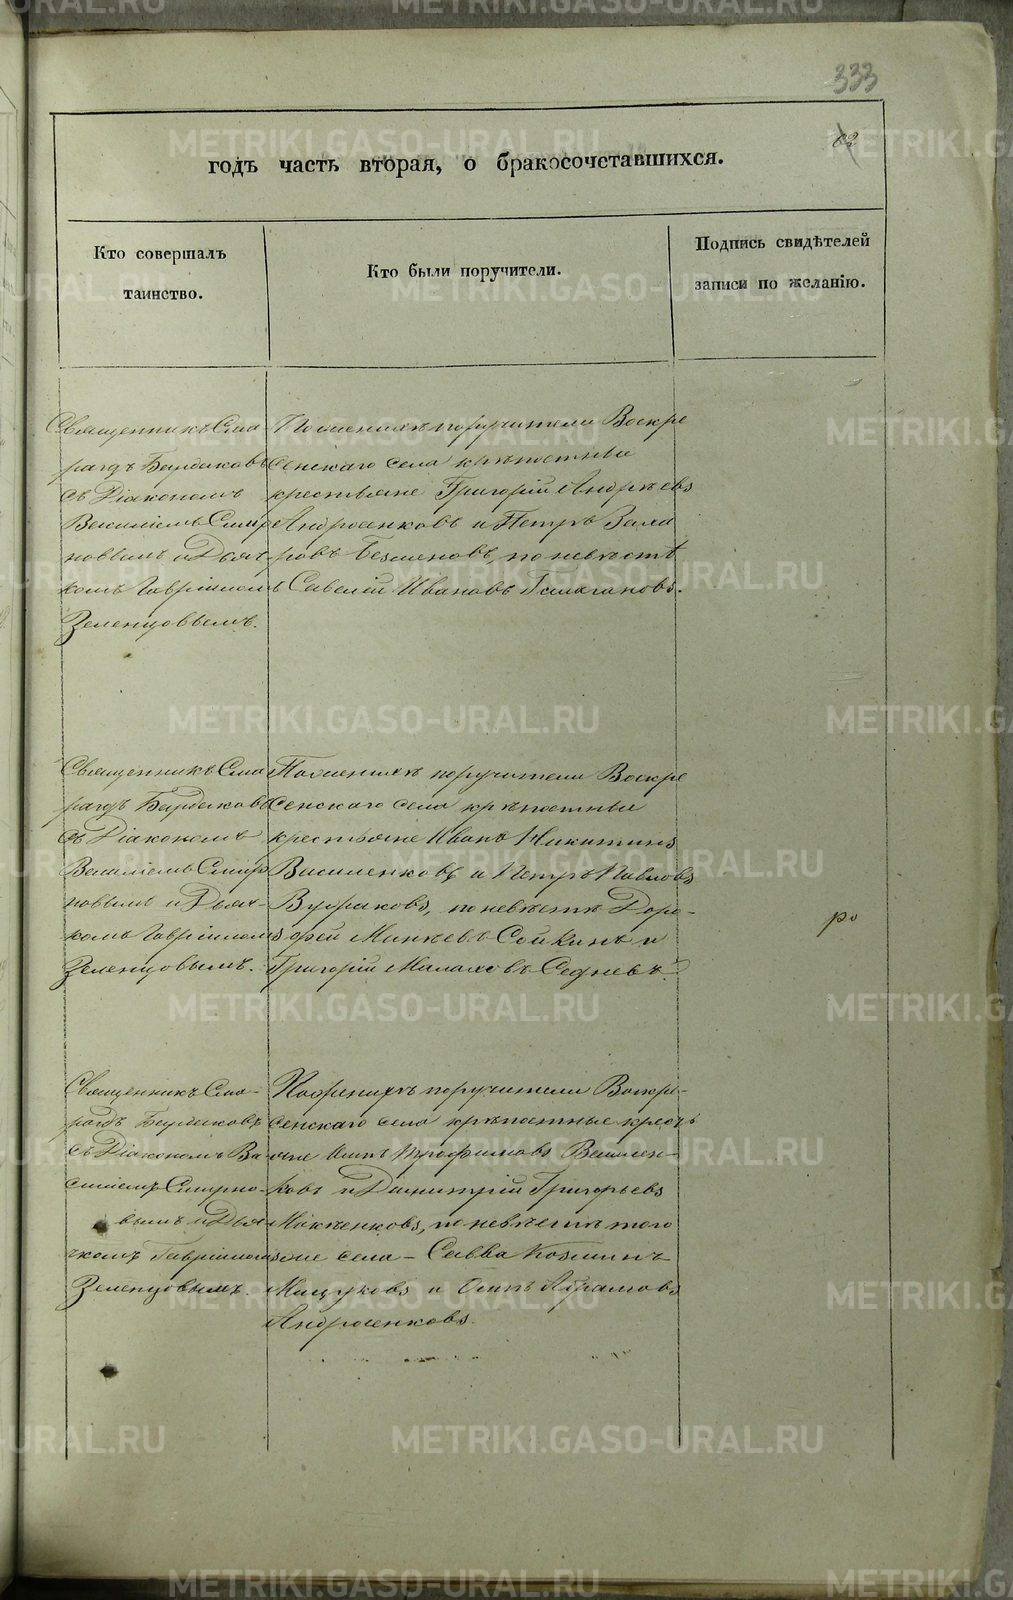 333
62
годъ часть вторая, о бракосочетавшихся.
Кто совершалъ
таинство.
Кто были поручители.
Подпись свидѣтелей
записи по желанію.
Священникъ Сма-
рагдъ Бардаковъ
съ Діакономъ
Василіемъ Смир
новымъ и Дьяч-
комъ Гавріиломъ
Зеленцовымъ.
По женихѣ поручители Воскре
сенскаго села крѣпостные
крестьяне Григорій Андреевъ
Андросенковъ и Петръ Заха
ровъ Безменовъ, по невѣстѣ
Савелій Ивановъ
Священникъ Сма
рагдъ Бардаковъ
съ Діакономъ
Василіемъ Смир
новымъ и Дьяч-
комъ Гавріиломъ
Зеленцовымъ.
По женихѣ поручители Воскре
сенскаго села крѣпостные
крестьяне Иванъ Никитинъ
Василенковъ и Петръ Павловъ
по невѣстѣ Доро-
фей Сойкинъ и
Григорій Малаховъ Седневъ.
ро
Священникъ Сма-
рагдъ Бардаковъ
съ Діакономъ Ва
силіемъ Смирно-
вымъ и Дья
чкомъ Гавріиломъ
Зеленцовымъ.
По женихѣ поручители Воскре-
сенскаго села крѣпостные кресть
яне Трофимовъ Василен-
ковъ и Димитрій Григорьевъ
по невѣстѣ того
же села - Савва Козминъ
Мищуковъ и Осипъ Абрамовъ
Андросенковъ.
METRIKI.GASO-URAL.RU